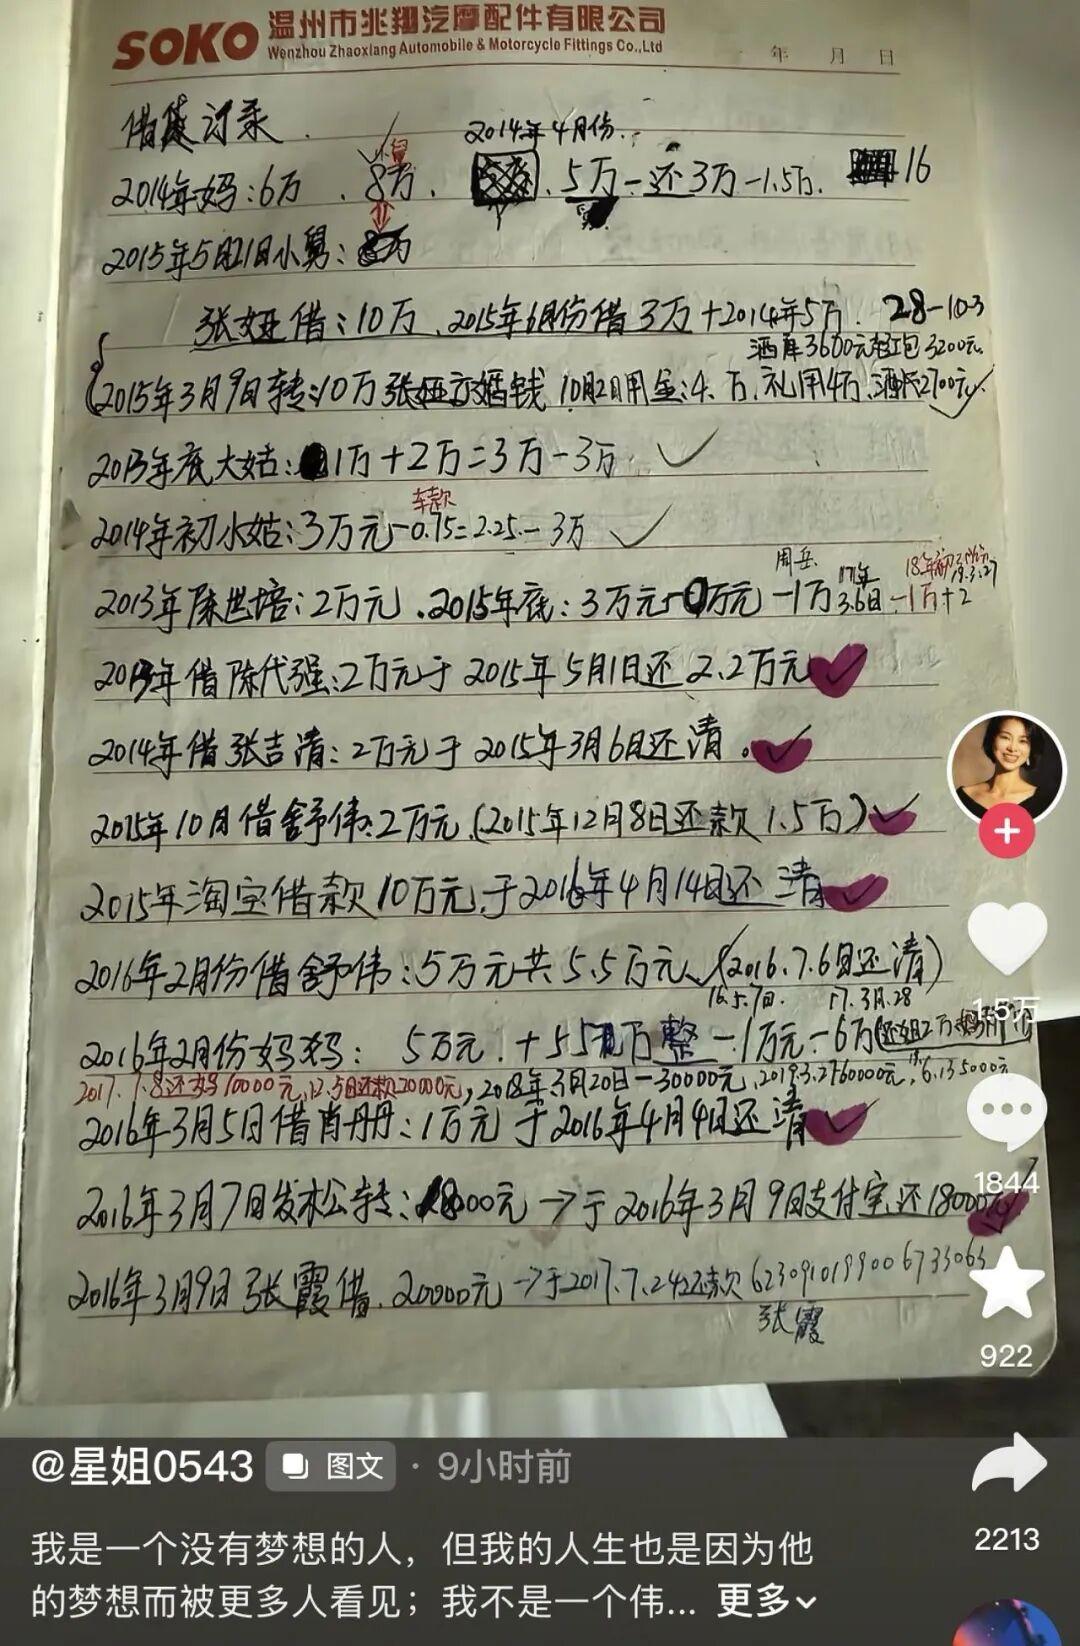 SOKO 温州市兆翔汽摩配件有限公司
Wenzhou Zhaoxiang Automobile & Motorcycle Fittings Co.,Ltd
年 月 日
借 记录
2014年4月份.
2014年妈:6万 . 8万. 5万-还3万-1.5万. 16
2015年5月21日小舅:
张娅借:10万、2015年6月份借3万+2014年5万. 28-10-3
酒席3600元 红包3200元
2015年3月9日转:10万张娅 婚钱 10月2日用金:4.万.礼用4万.酒 2700元
2013年底大姑: 1万+2万=3万-3万
车款
2014年初小姑:3万元-0.75=2.25.-3万
周岳 17年 18年初 19.3.27
2013年陈世培:2万元.2015年底:3万元- 万元-1万 3.6日 -1万+2
年借陈代强:2万元于2015年5月1日还2.2万元
2014年借张吉清:2万元于2015年3月6日还清.
2015年10月借舒伟:2万元(2015年12月8日还款1.5万)
2015年淘宝借款10万元于2016年4月14日还清
2016年2月份借舒伟:5万元共5.5万元、(2016.7.6日还清)
16.5.7日. 17.3月.28
2016年2月份妈妈: 5万元.+5 万整-1万元-6万(还姐2万
2017.7.8还妈10000元,12.5日还款20000元,2018年3月20日-30000元,2019.3.27 60000元, 6.13 5000元
2016年3月5日借肖丹丹:1万元于2016年4月4日还清
2016年3月7日发松转:18000元→于2016年3月9日支付宝还18000元
2016年3月9日张霞借.20000元→于2017.7.24还款6230910199006733063
张霞
1.5万
1844
922
2213
@星姐0543 图文 · 9小时前
我是一个没有梦想的人，但我的人生也是因为他
的梦想而被更多人看见；我不是一个伟... 更多